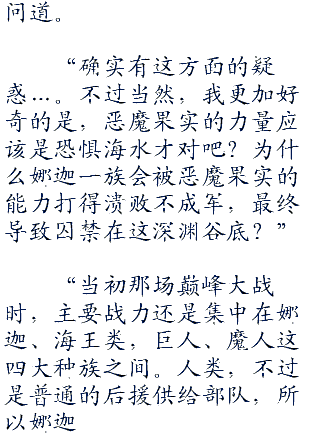 问道。
“确实有这方面的疑
惑…。不过当然，我更加好
奇的是，恶魔果实的力量应
该是恐惧海水才对吧？为什
么娜迦一族会被恶魔果实的
能力打得溃败不成军，最终
导致囚禁在这深渊谷底？”
“当初那场巅峰大战
时，主要战力还是集中在娜
迦、海王类，巨人、魔人这
四大种族之间。人类，不过
是普通的后援供给部队，所
以娜迦